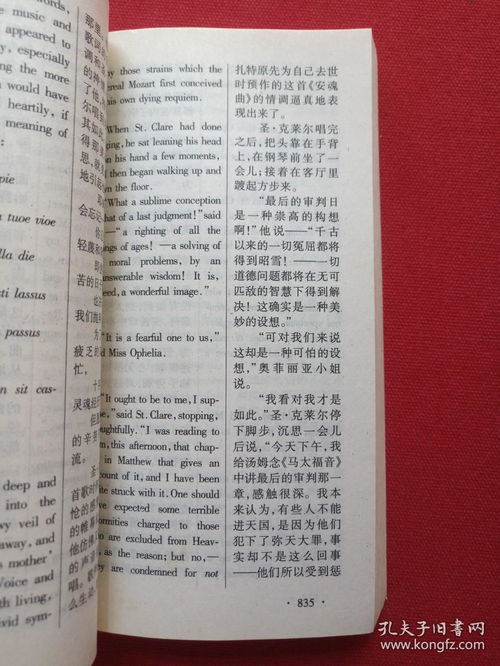 ords,
music and
appeared to
y, especially
ng the more
n would have
heartily, if
meaning of
:
pie
n tuoe vioe
lla die
sti lassus
passus
n sit cas-
deep and
into the
vy veil of
away, and
s mother'
Voice and
th living,
vid sym-
那里
歌词
调和
的神
了他
尔唱
其如
得那
思,
地引
会忘
你
轻蔑
即
苦的日
也
我们
为
疲乏的
忙,
十
灵魂
但
的辛
流。
圣
首歌
怆的
的帷
他仿
的声
唱。
么生
by those strains which the
real Mozart first conceived
his own dying requiem.
When St. Clare had done
ing, he sat leaning his head
on his hand a few moments,
then began walking up and
n the floor.
What a sublime conception
that of a last judgment!" said
—"a righting of all the
ngs of ages! —a solving of
moral problems, by an
nswerable wisdom! It is,
eed, a wonderful image."
It is a fearful one to us,"
Miss Ophelia.
It ought to be to me, I sup-
e," said St. Clare, stopping,
ughtfully. "I was reading to
n, this afternoon, that chap-
in Matthew that gives an
ount of it, and I have been
te struck with it. One should
ve expected some terrible
ormities charged to those
o are excluded from Heav-
, as the reason; but no,—
ey are condemned for not
扎特原先为自己去世
时预作的这首《安魂
曲》的情调逼真地表
现出来了。
圣·克莱尔唱完
之后,把头靠在手背
上,在钢琴前坐了一
会儿;接着在客厅里
踱起方步来。
“最后的审判日
是一种崇高的构想
啊!”他说——“千古
以来的一切冤屈都将
得到昭雪!———一切
道德问题都将在无可
匹敌的智慧下得到解
决!这确实是一种美
妙的设想。”
“可对我们来说
这却是一种可怕的设
想,”奥菲丽亚小姐
说。
“我看对我才是
如此。”圣·克莱尔停
下脚步,沉思一会儿
后说,“今天下午,我
给汤姆念《马太福音》
中讲最后的审判那一
章,感触很深。我本
来认为,有些人不能
进天国,是因为他们
犯下了弥天大罪,事
实却不是这么回事
——他们所以受到惩
·835·
孔夫子旧书网
www.kongfz.com